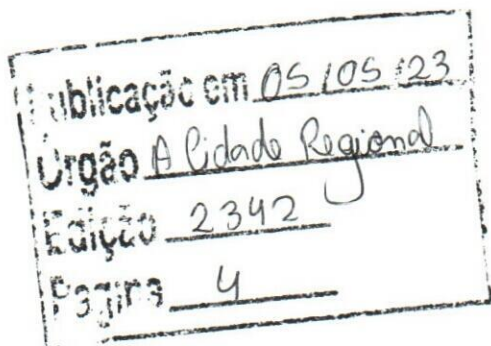 Publicação em 05/05/23
Orgão A Cidade Regional
Edição 2342
Pagina 4